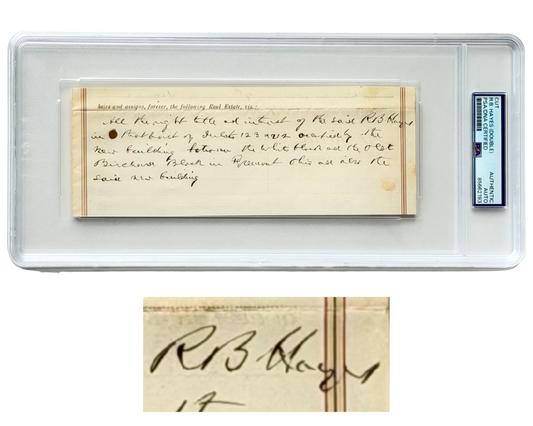 heirs and assigns, forever, the following Real Estate, viz.:
All the right title and interest of the said RB Hayes
in that part of 12 3 occupied by the
New building between the White block and the old
Birchard Block in Fremont Ohio and also the
said new building
CUT
R.B. HAYES (DOUBLE)
PSA/DNA CERTIFIED
AUTHENTIC
AUTO
85662793
RB Hayes